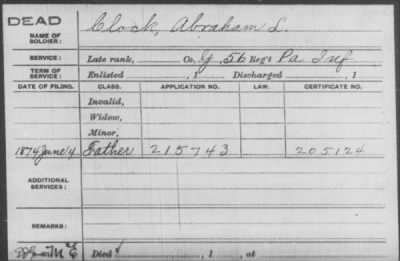 DEAD
NAME OF SOLDIER: Clock, Abraham S.
SERVICE: Late rank, Co. G, 56 Reg't Pa Inf
TERM OF SERVICE: Enlisted , 1 Discharged , 1
DATE OF FILING. CLASS. APPLICATION NO. LAW. CERTIFICATE NO.
Invalid,
Widow,
Minor,
1874 June 4 Father 215743 205124
ADDITIONAL SERVICES:
REMARKS:
Died , 1 , at